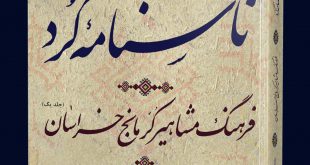 نامنامه کُرد
فرهنگ مشاهیر کرمانج خراسان
(جلد یک)